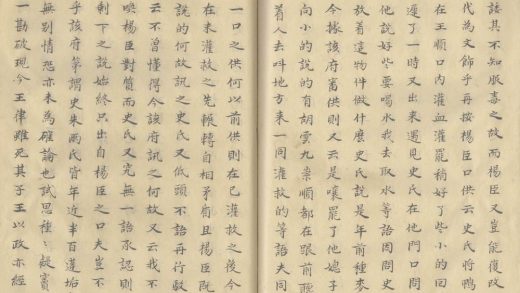 語其不知服毒之故而楊臣又豈能復改
代為文飾乎再按楊臣口供云史氏將鴨
在王順口內灌血灌罷稍好了些小的回
遲了一時又出來遇見史氏在他門口問
他說好些要喝水我去取水等語因問史
放着這物件做什麼史氏說是年前種來
今據該府審供則又云是嚷罷了他媳子
向小的說的有胡雲九崇順都在跟前聽
着人去叫地方來一同灌救的等語夫同
一口之供何以前供則在已灌救之後今
在未灌救之先輾轉自相矛盾且楊臣既
說的何故訊之史氏又低頭不語再行駁
云不曾懂得今該府訊之何故又云我不
喚楊臣對質而史氏又究無一語承認則
剩下之說始終只出自楊臣之口夫豈不
乎該府第謂史朱兩氏皆年近半百蓬垢
無別情恐亦未為確論也試思種〻疑竇
一勘破現今王律雖死其子王以政亦經